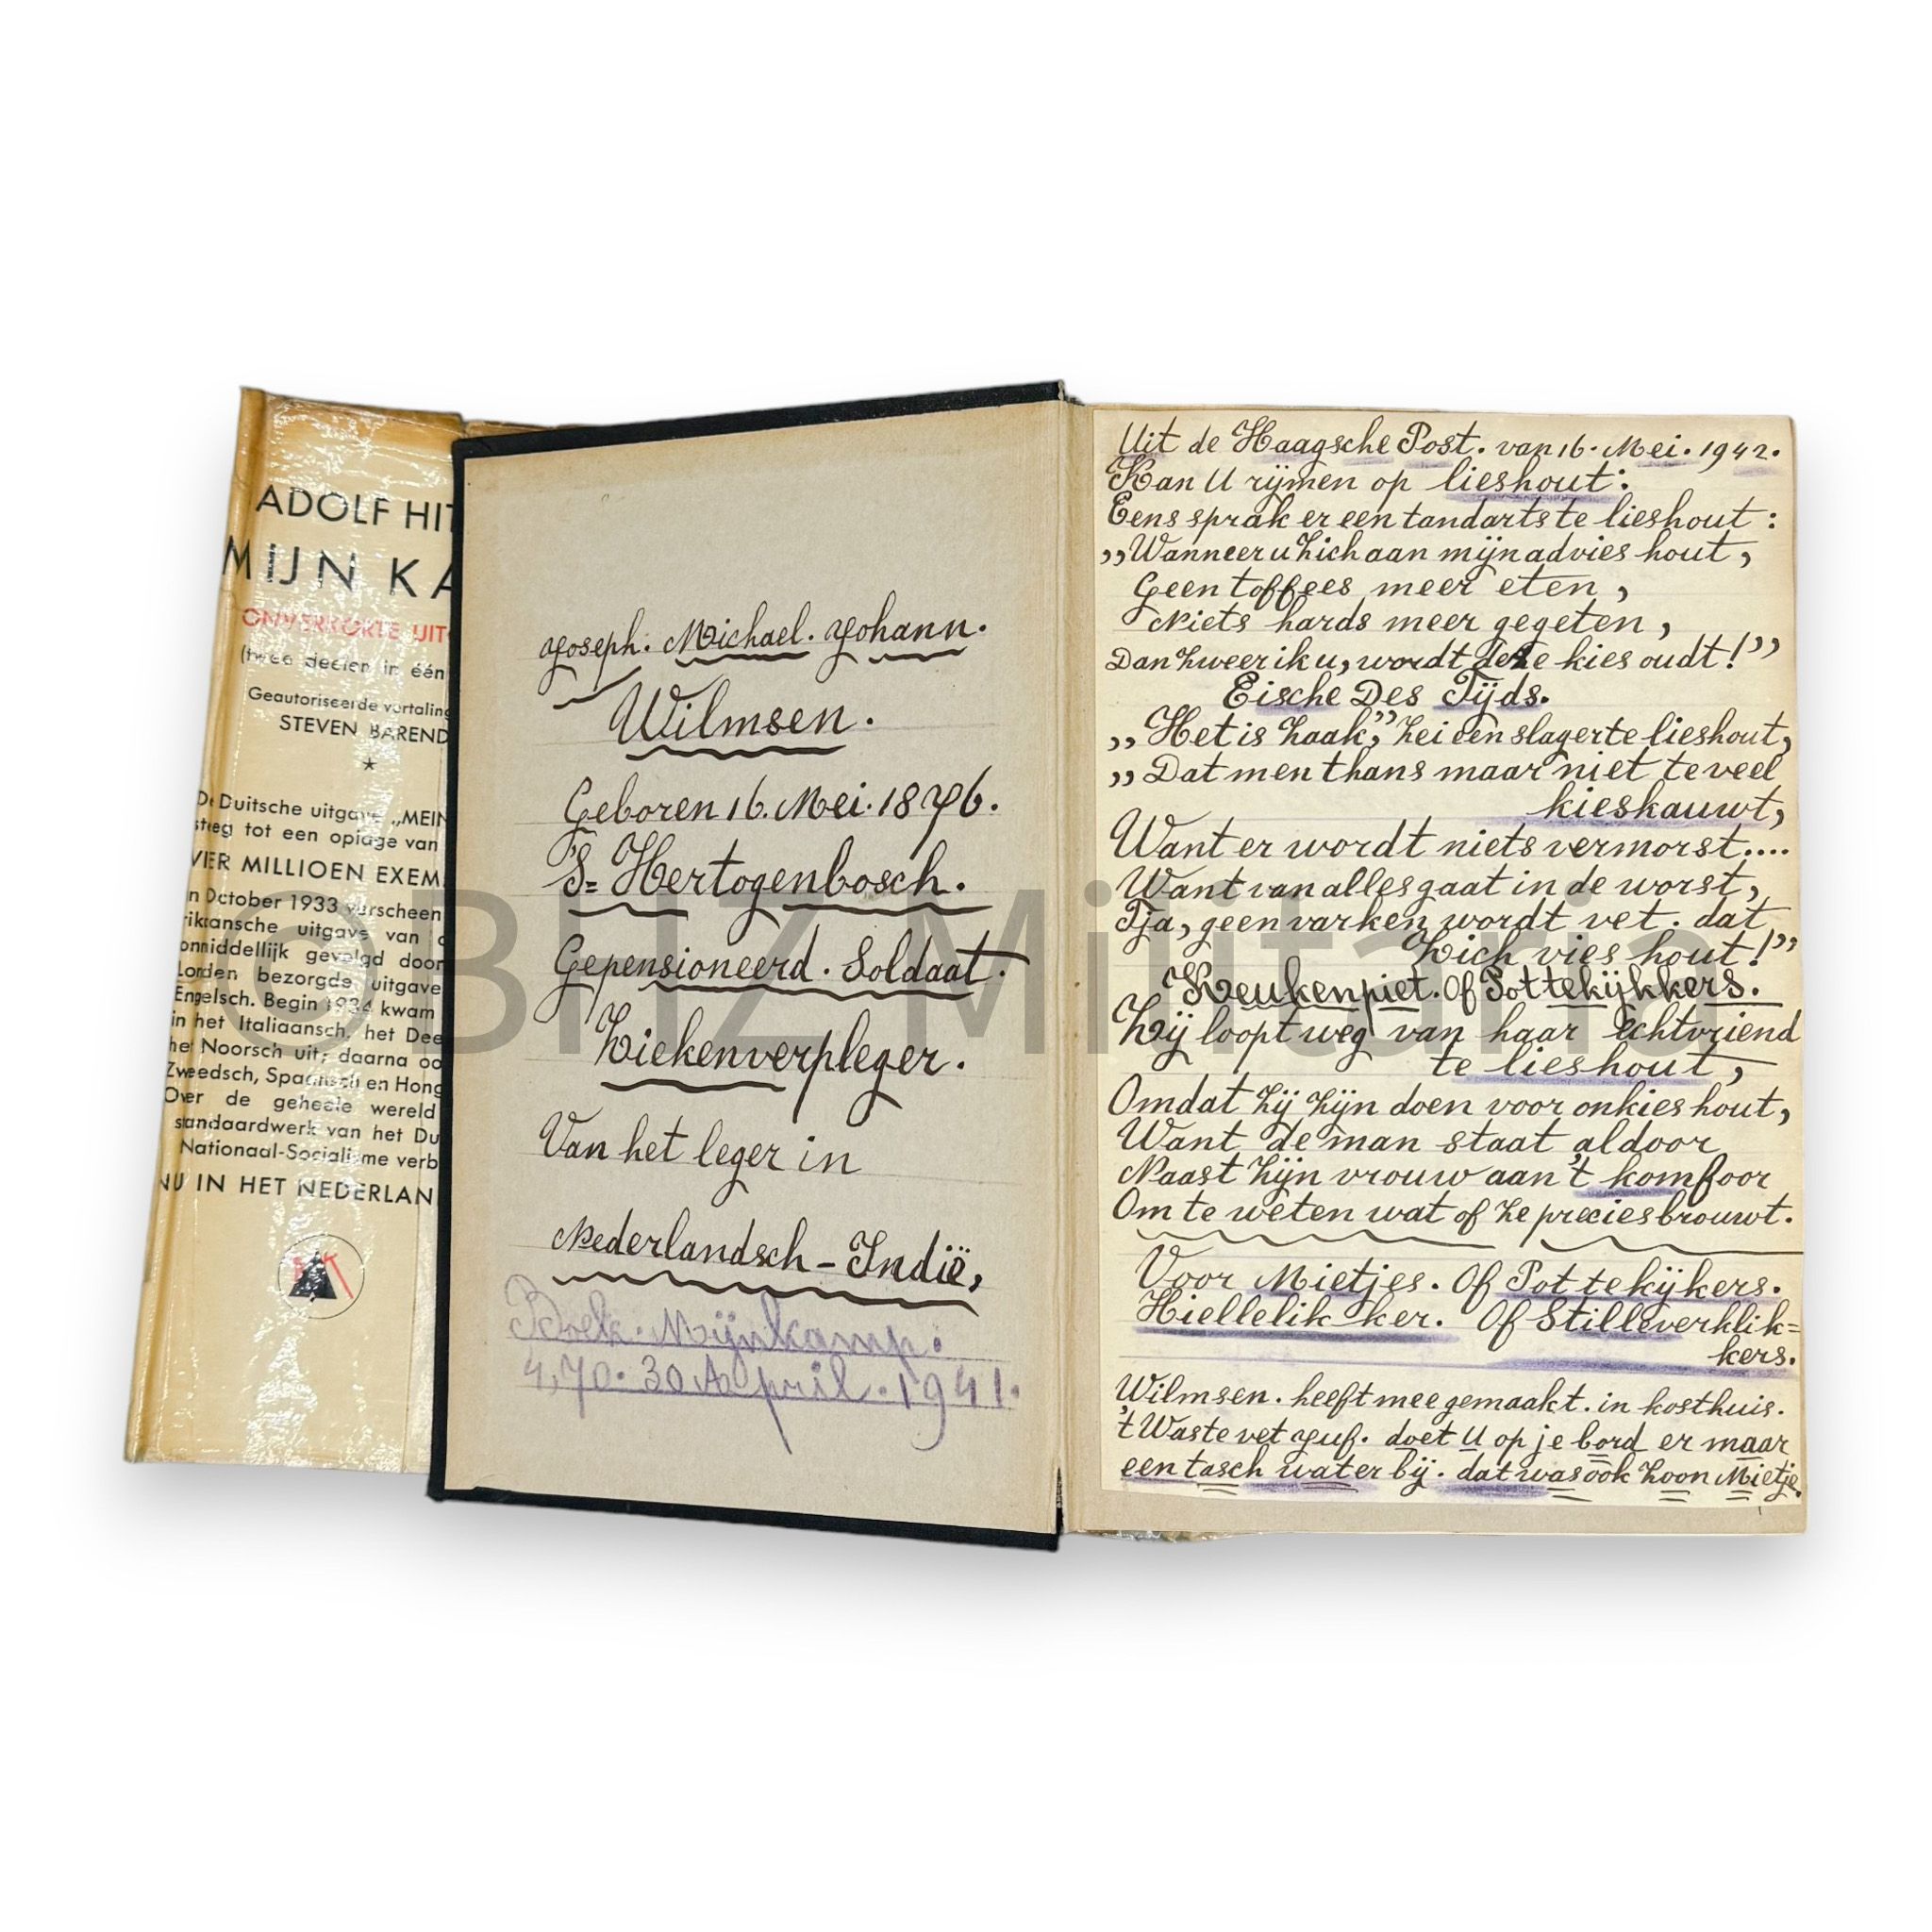 ADOLF HIT
MIJN KA
ONVERKORTE UITG
(twee deelen in één
Geautoriseerde vertaling
STEVEN BAREND
*
De Duitsche uitgave „MEIN
steeg tot een oplage van
VIER MILLIOEN EXEM
In October 1933 verscheen
rikaansche uitgave van d
onmiddellijk gevolgd door
Lorden bezorgde uitgave
Engelsch. Begin 1934 kwam
in het Italiaansch, het Dee
het Noorsch uit; daarna oo
Zweedsch, Spaansch en Hong
Over de geheele wereld
standaardwerk van het Du
Nationaal-Socialisme verb
NU IN HET NEDERLAN
Joseph. Michael. Johann.
Wilmsen.
Geboren 16. Mei. 1876.
'S= Hertogenbosch.
Gepensioneerd. Soldaat.
Ziekenverpleger.
Van het leger in
Nederlandsch-Indië,
Boek. Mijnkamp.
4,70. 30 April. 1941.
Uit de Haagsche Post. van 16. Mei. 1942.
Kan U rijmen op lieshout:
Eens sprak er een tandarts te lieshout:
„Wanneer u zich aan mijn advies hout,
Geen toffees meer eten,
Niets hards meer gegeten,
Dan zweer ik u, wordt deze kies oudt!”
Eische Des Tijds.
„Het is zaak,” zei een slager te lieshout,
„Dat men thans maar niet te veel
kieskauwt,
Want er wordt niets vermorst....
Want van alles gaat in de worst,
Tja, geen varken wordt vet. dat
zich vies hout!”
Keukenpiet. Of Pottekijkkers.
Zij loopt weg van haar echtvriend
te lieshout,
Omdat zij zijn doen voor onkies hout,
Want de man staat aldoor
Naast zijn vrouw aan 't komfoor
Om te weten wat of ze precies brouwt.
Voor Mietjes. Of Pottekijkers.
Hiellelik-ker. Of Stilleverklik=
kers.
Wilmsen. heeft mee gemaakt. in kosthuis.
't Was te vet Juf. doet U op je bord er maar
een tasch water bij. dat was ook zoon Mietje.
©BHZ Militaria